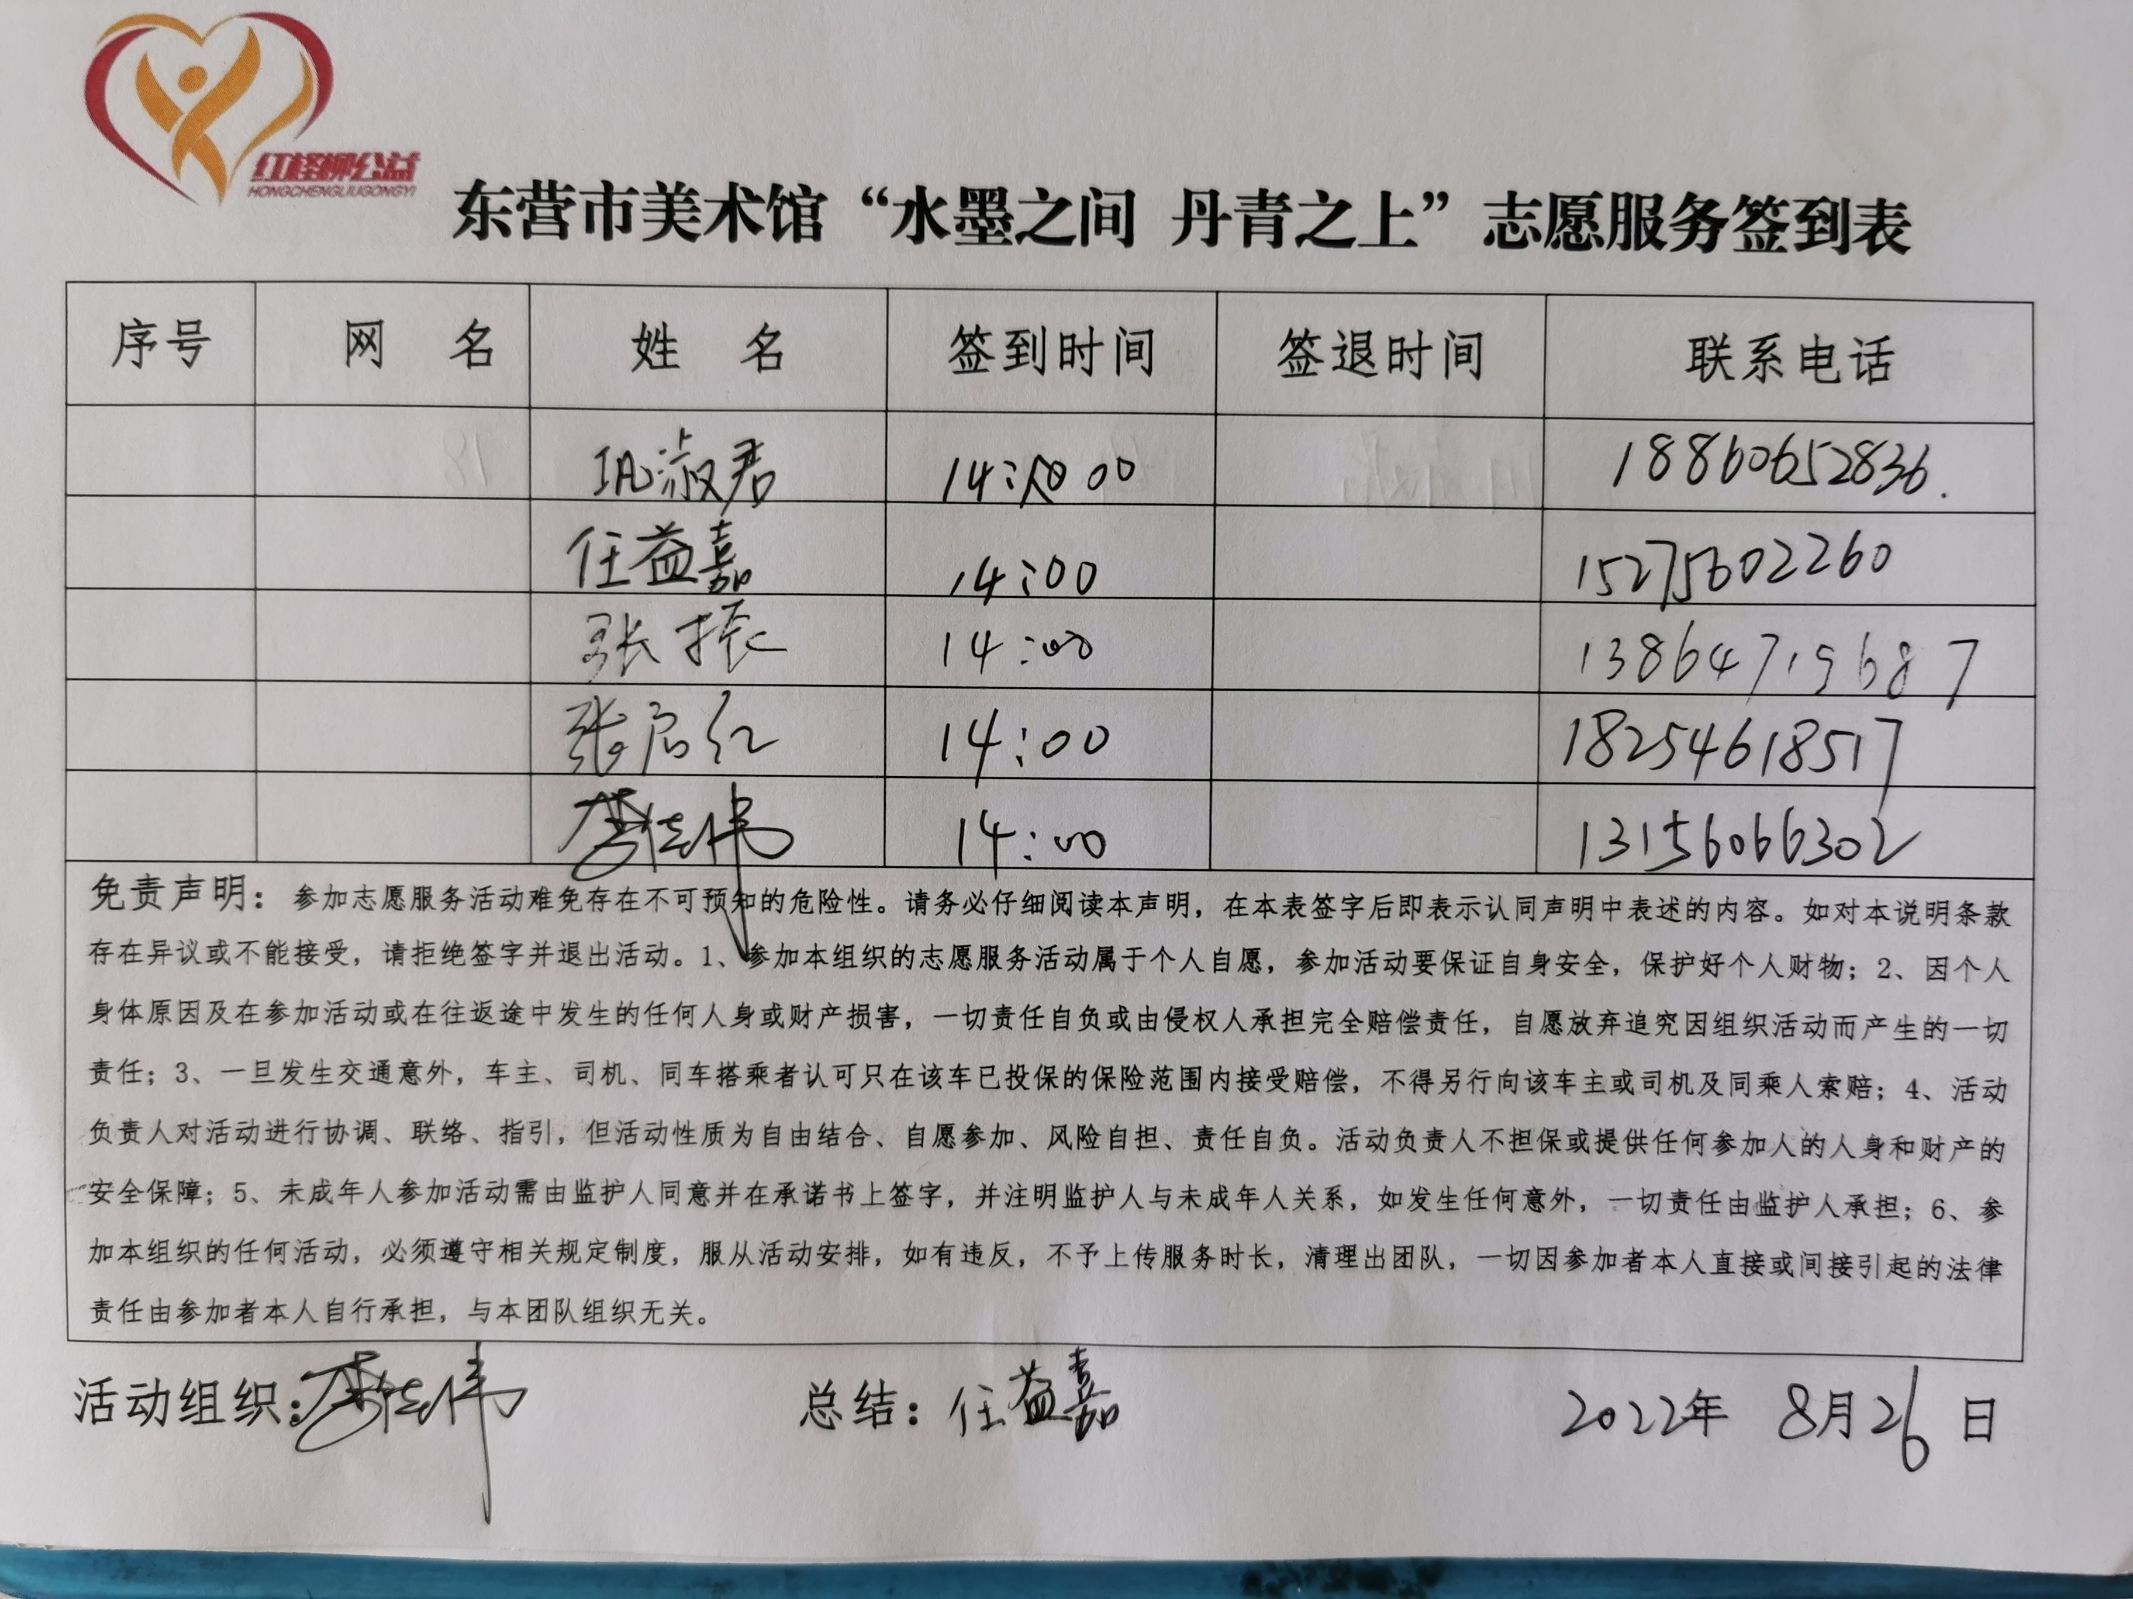 红柽柳公益
HONGCHENGLIUGONGYI
东营市美术馆“水墨之间 丹青之上”志愿服务签到表
序号 网 名 姓 名 签到时间 签退时间 联系电话
巩淑君 14: 00 18860652836.
任益嘉 14:00 15275602260
张振 14:00 13864719687
张启红 14:00 18254618517
14:00 13156066302
免责声明：参加志愿服务活动难免存在不可预知的危险性。请务必仔细阅读本声明，在本表签字后即表示认同声明中表述的内容。如对本说明条款
存在异议或不能接受，请拒绝签字并退出活动。1、参加本组织的志愿服务活动属于个人自愿，参加活动要保证自身安全，保护好个人财物；2、因个人
身体原因及在参加活动或在往返途中发生的任何人身或财产损害，一切责任自负或由侵权人承担完全赔偿责任，自愿放弃追究因组织活动而产生的一切
责任；3、一旦发生交通意外，车主、司机、同车搭乘者认可只在该车已投保的保险范围内接受赔偿，不得另行向该车主或司机及同乘人索赔；4、活动
负责人对活动进行协调、联络、指引，但活动性质为自由结合、自愿参加、风险自担、责任自负。活动负责人不担保或提供任何参加人的人身和财产的
安全保障；5、未成年人参加活动需由监护人同意并在承诺书上签字，并注明监护人与未成年人关系，如发生任何意外，一切责任由监护人承担；6、参
加本组织的任何活动，必须遵守相关规定制度，服从活动安排，如有违反，不予上传服务时长，清理出团队，一切因参加者本人直接或间接引起的法律
责任由参加者本人自行承担，与本团队组织无关。
活动组织： 总结：任益嘉 2022年 8月26日